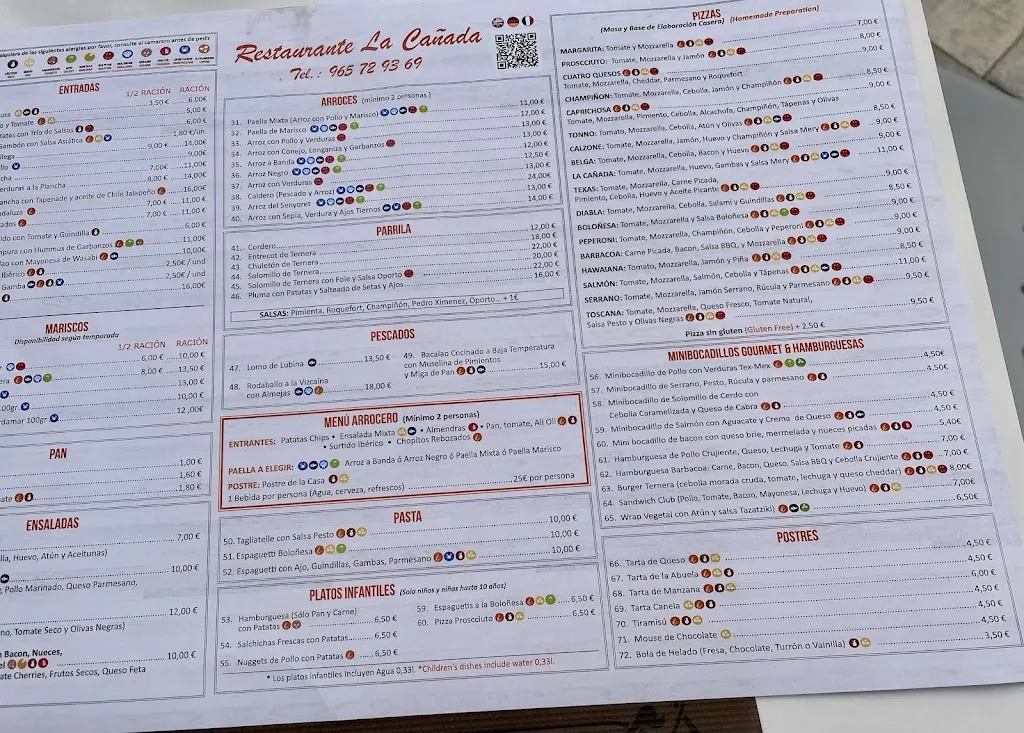 alquiera de las siguientes alergias por favor, consulte al camarero antes de pedir
ENTRADAS
1/2 RACIÓN RACIÓN
3,50 € 6,00€
5,00 €
y Tomate 6,00 €
Patatas con Trío de Salsas 1,80 €/un
Gambón con Salsa Asiática 14,00€
9,00 € 9,00€
11,00€
7,00€ 14,00€
erduras a la Plancha 8,00 €
ancha con Tapenade y aceite de Chile Jalapeño 16,00€
daluza 7,00 € 11,00€
ados 7,00 € 11,00€
ido con Tomate y Guindilla 6,00 €
mpura con Hummus de Garbanzos 11,00€
ao con Mayonesa de Wasabi 10,00€
Ibérico 2,50€ / und
Gamba 2,50€ / und
16,00€
MARISCOS
Disponibilidad según temporada
1/2 RACIÓN RACIÓN
6,00 € 10,00 €
era 8,00 € 13,50 €
13,00 €
00gr 10,00 €
rdamar 100gr 12,00€
PAN
1,00 €
1,60 €
ate 1,80 €
ENSALADAS
7,00 €
lla, Huevo, Atún y Aceitunas)
10,00 €
, Pollo Marinado, Queso Parmesano,
12,00 €
no, Tomate Seco y Olivas Negras)
n Bacon, Nueces,
el 10,00 €
ate Cherries, Frutos Secos, Queso Feta
Restaurante La Cañada
Tel.: 965 72 93 69
ARROCES (mínimo 2 personas)
31. Paella Mixta (Arroz con Pollo y Marisco) 11,00 €
32. Paella de Marisco 12,00 €
33. Arroz con Pollo y Verduras 13,00 €
34. Arroz con Conejo, Longaniza y Garbanzos 13,00 €
35. Arroz a Banda 12,00 €
36. Arroz Negro 12,50 €
37. Arroz con Verduras 13,00 €
38. Caldero (Pescado y Arroz) 24,00€
39. Arroz del Senyoret 13,00 €
40. Arroz con Sepia, Verdura y Ajos Tiernos 14,00 €
PARRILA
41. Cordero 12,00 €
42. Entrecot de Ternera 18,00 €
43. Chuletón de Ternera 22,00 €
44. Solomillo de Ternera 20,00 €
45. Solomillo de Ternera con Foie y Salsa Oporto 22,00 €
46. Pluma con Patatas y Salteado de Setas y Ajos 16,00 €
SALSAS: Pimienta, Roquefort, Champiñón, Pedro Ximenez, Oporto... + 1€
PESCADOS
47. Lomo de Lubina 13,50 €
48. Rodaballo a la Vizcaina
con Almejas 18,00 €
49. Bacalao Cocinado a Baja Temperatura
con Muselina de Pimientos
y Miga de Pan 15,00 €
MENÚ ARROCERO (Mínimo 2 personas)
ENTRANTES: Patatas Chips • Ensalada Mixta • Almendras • Pan, tomate, Ali Oli
• Surtido Ibérico • Chopitos Rebozados
PAELLA A ELEGIR: Arroz a Banda ó Arroz Negro ó Paella Mixta ó Paella Marisco
POSTRE: Postre de la Casa
1 Bebida por persona (Agua, cerveza, refrescos) 25€ por persona
PASTA
50. Tagliatelle con Salsa Pesto 10,00 €
51. Espaguetti Boloñesa 10,00 €
52. Espaguetti con Ajo, Guindillas, Gambas, Parmesano 10,00 €
PLATOS INFANTILES (Solo niños y niñas hasta 10 años)
53. Hamburguesa (Sólo Pan y Carne)
con Patatas 6,50 €
54. Salchichas Frescas con Patatas 6,50 €
55. Nuggets de Pollo con Patatas 6,50 €
59. Espaguetis a la Boloñesa 6,50 €
60. Pizza Prosccuito 6,50 €
• Los platos infantiles incluyen Agua 0,33l. *Children's dishes include water 0,33l.
PIZZAS
(Masa y Base de Elaboración Casera) (Homemade Preparation)
MARGARITA: Tomate y Mozzarella 7,00 €
PROSCCIUTO: Tomate, Mozzarella y Jamón 8,00 €
CUATRO QUESOS 9,00 €
Tomate, Mozzarella, Cheddar, Parmesano y Roquefort
CHAMPIÑON: Tomate, Mozzarella, Cebolla, Jamón y Champiñón 8,50 €
CAPRICHOSA 9,00 €
Tomate, Mozzarella, Pimiento, Cebolla, Alcachofa, Champiñón, Tápenas y Olivas
TONNO: Tomate, Mozzarella, Cebolla, Atún y Olivas 8,50 €
CALZONE: Tomate, Mozzarella, Jamón, Huevo y Champiñón y Salsa Mery 9,00 €
BELGA: Tomate, Mozzarella, Cebolla, Bacon y Huevo 9,00 €
LA CAÑADA: Tomate, Mozzarella, Huevo, Gambas y Salsa Mery 11,00 €
TEXAS: Tomate, Mozzarella, Carne Picada,
Pimiento, Cebolla, Huevo y Aceite Picante 9,00 €
DIABLA: Tomate, Mozzarella, Cebolla, Salami y Guindillas 8,50 €
BOLOÑESA: Tomate, Mozzarella y Salsa Boloñesa 9,00 €
PEPERONI: Tomate, Mozzarella, Champiñón, Cebolla y Peperoni 9,00 €
BARBACOA: Carne Picada, Bacon, Salsa BBQ, y Mozzarella 9,00 €
HAWAIANA: Tomato, Mozzarella, Jamón y Piña 8,50 €
SALMÓN: Tomate, Mozzarella, Salmón, Cebolla y Tápenas 11,00 €
SERRANO: Tomate, Mozzarella, Jamón Serrano, Rúcula y Parmesano 9,50 €
TOSCANA: Tomate, Mozzarella, Queso Fresco, Tomate Natural,
Salsa Pesto y Olivas Negras 9,50 €
Pizza sin gluten (Gluten Free) + 2,50 €
MINIBOCADILLOS GOURMET & HAMBURGUESAS
56. Minibocadillo de Pollo con Verduras Tex-Mex 4,50€
57. Minibocadillo de Serrano, Pesto, Rúcula y parmesano 4,50€
58. Minibocadillo de Solomillo de Cerdo con
Cebolla Caramelizada y Queso de Cabra 4,50 €
59. Minibocadillo de Salmón con Aguacate y Crema de Queso 4,50 €
60. Mini bocadillo de bacon con queso brie, mermelada y nueces picadas 5,40€
61. Hamburguesa de Pollo Crujiente, Queso, Lechuga y Tomate 7,00 €
62. Hamburguesa Barbacoa: Carne, Bacon, Queso, Salsa BBQ y Cebolla Crujiente 7,00 €
63. Burger Ternera (cebolla morada cruda, tomate, lechuga y queso cheddar) 8,00€
64. Sandwich Club (Pollo, Tomate, Bacon, Mayonesa, Lechuga y Huevo) 7,00€
65. Wrap Vegetal con Atún y salsa Tazatziki) 6,50€
POSTRES
66. Tarta de Queso 4,50 €
67. Tarta de la Abuela 4,50 €
68. Tarta de Manzana 6,00 €
69. Tarta Canela 4,50 €
70. Tiramisú 4,50 €
71. Mouse de Chocolate 4,50 €
72. Bola de Helado (Fresa, Chocolate, Turrón o Vainilla) 3,50 €